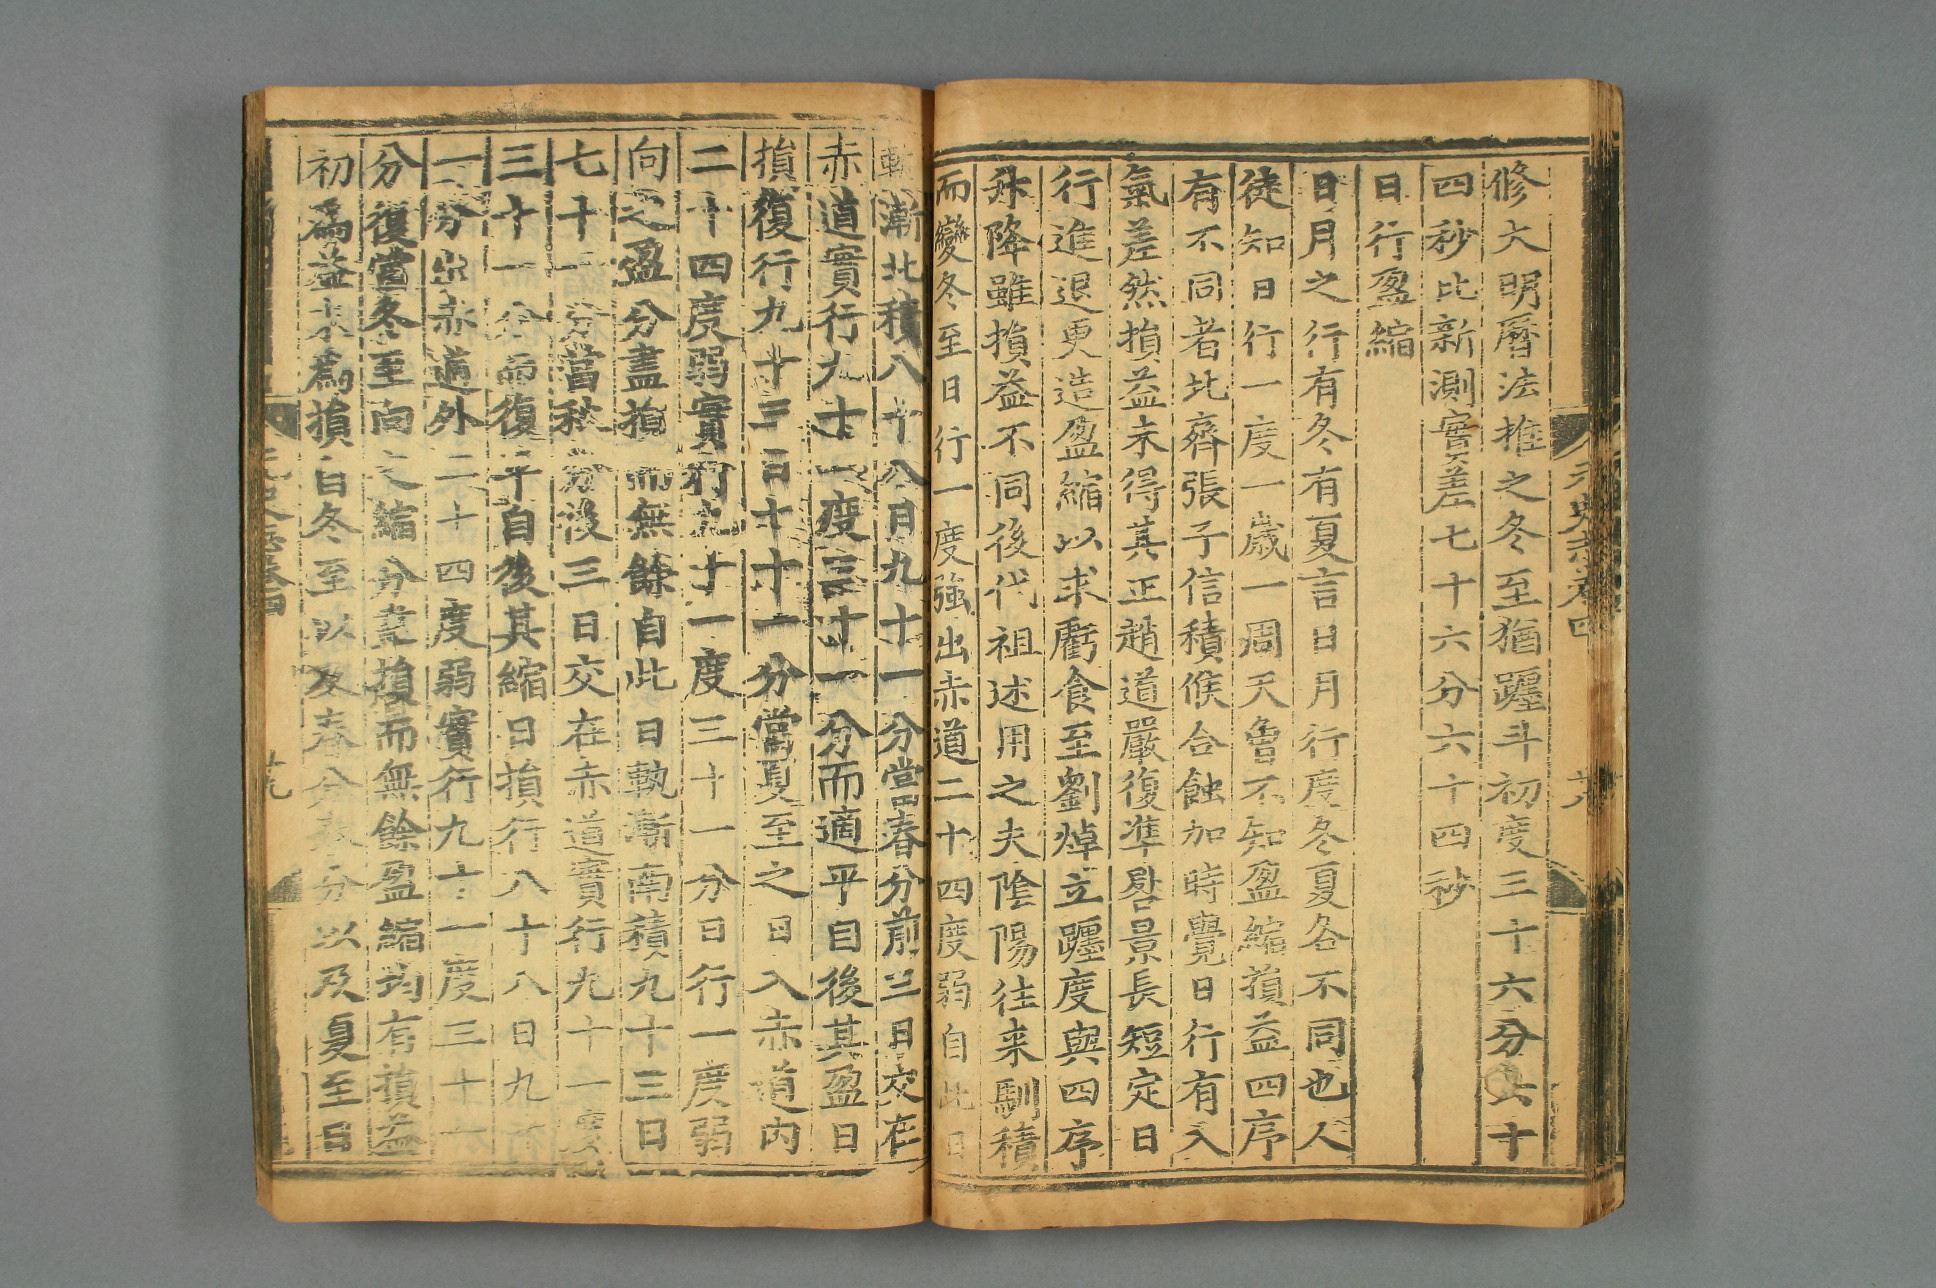 元史志卷四
十八
修大明曆法推之冬至猶躔斗初度三十六分六十
四秒比新測實差七十六分六十四秒
日行盈縮
日月之行有冬有夏言日月行度冬夏各不同也人
徒知日行一度一歲一周天曾不知盈縮損益四序
有不同者北齊張子信積候合蝕加時覺日行有入
氣差然損益未得其正趙道嚴復準晷景長短定日
行進退更造盈縮以求虧食至劉焯立躔度與四序
升降雖損益不同後代祖述用之夫陰陽往來馴積
而變冬至日行一度強出赤道二十四度弱自此日
軌漸北積八十八日九十一分當春分前三日交在
赤道實行九十一度三十一分而適平自後其盈日
損復行九十三日七十一分當夏至之日入赤道內
二十四度弱實行九十一度三十一分日行一度弱
向之盈分盡損而無餘自此日軌漸南積九十三日
七十一分當秋分後三日交在赤道實行九十一度
三十一分而復平自後其縮日損行八十八日九十
一分出赤道外二十四度弱實行九十一度三十一
分復當冬至向之縮分盡損而無餘盈縮均有損益
初為益末為損自冬至以及春分春分以及夏至日
元史志卷四
十九